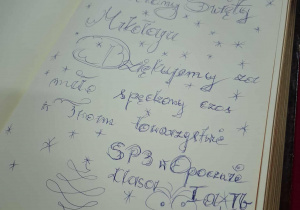 Święty
Mikołaju
Dziękujemy za
miło spędzony czas
w Twoim towarzystwie
SP3 w Opocznie
klasa